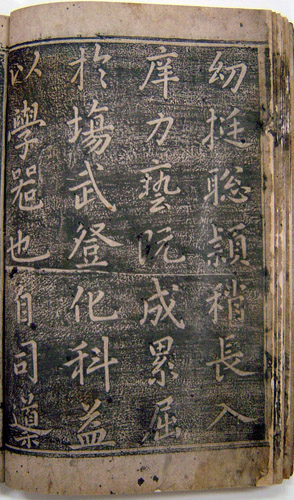 幼挺聡頴稍長入
庠力藝既成累屈
於塲武登化科益
以學器也自司業